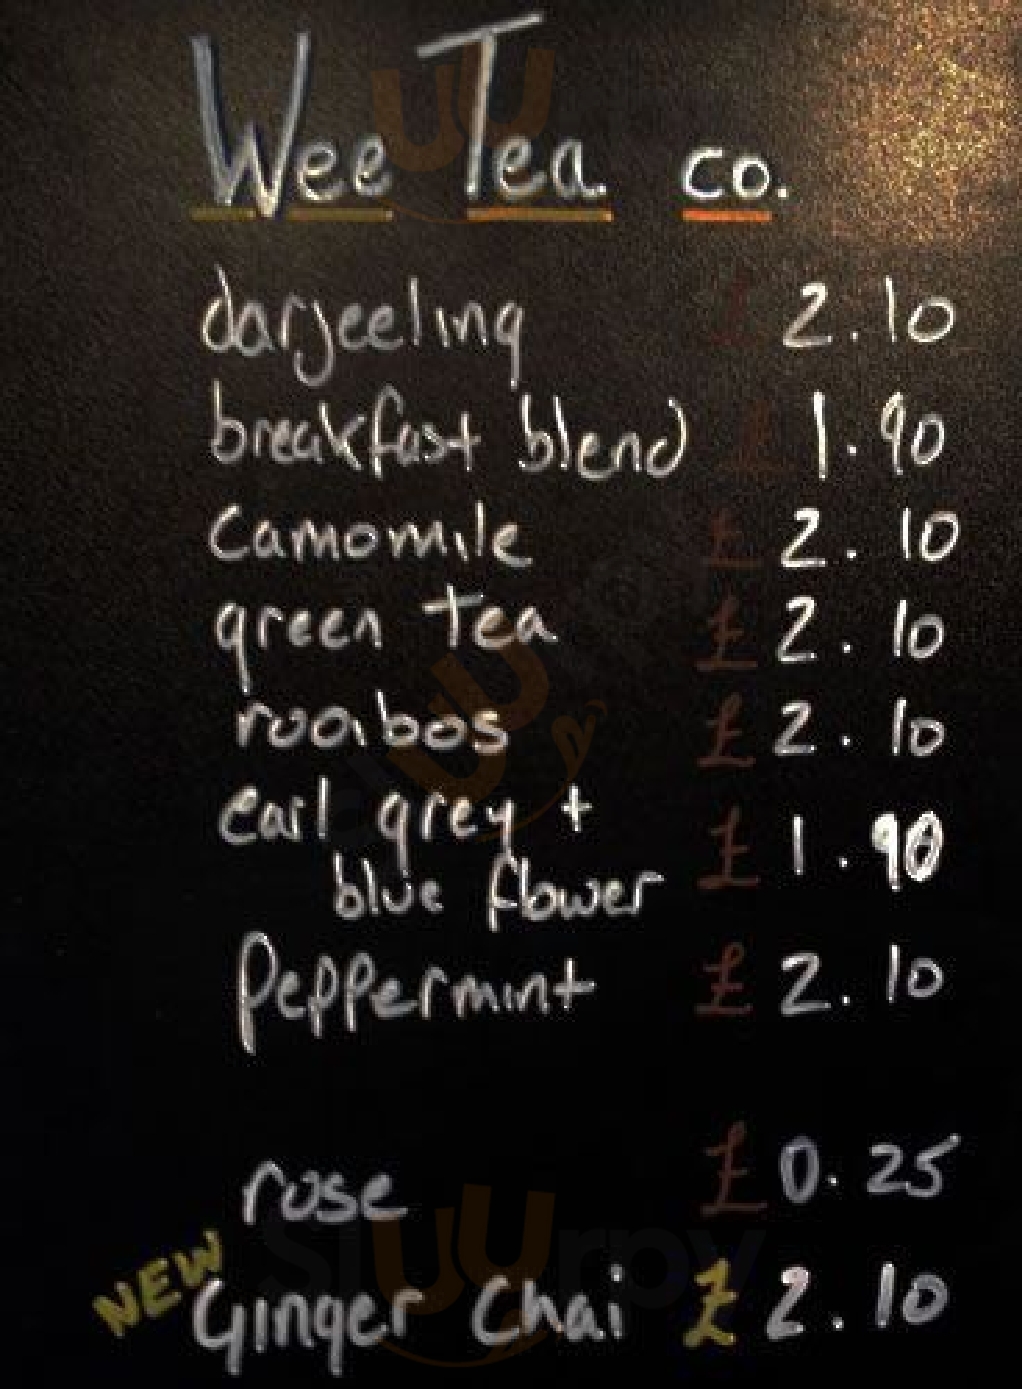 Wee Tea co.
darjeeling £ 2.10
breakfast blend £ 1.90
Camomile £ 2.10
green tea £ 2.10
rooibos £ 2.10
earl grey +
blue flower £ 1.90
Peppermint £ 2.10
rose £ 0.25
NEW
Ginger Chai £ 2.10
sluurpy